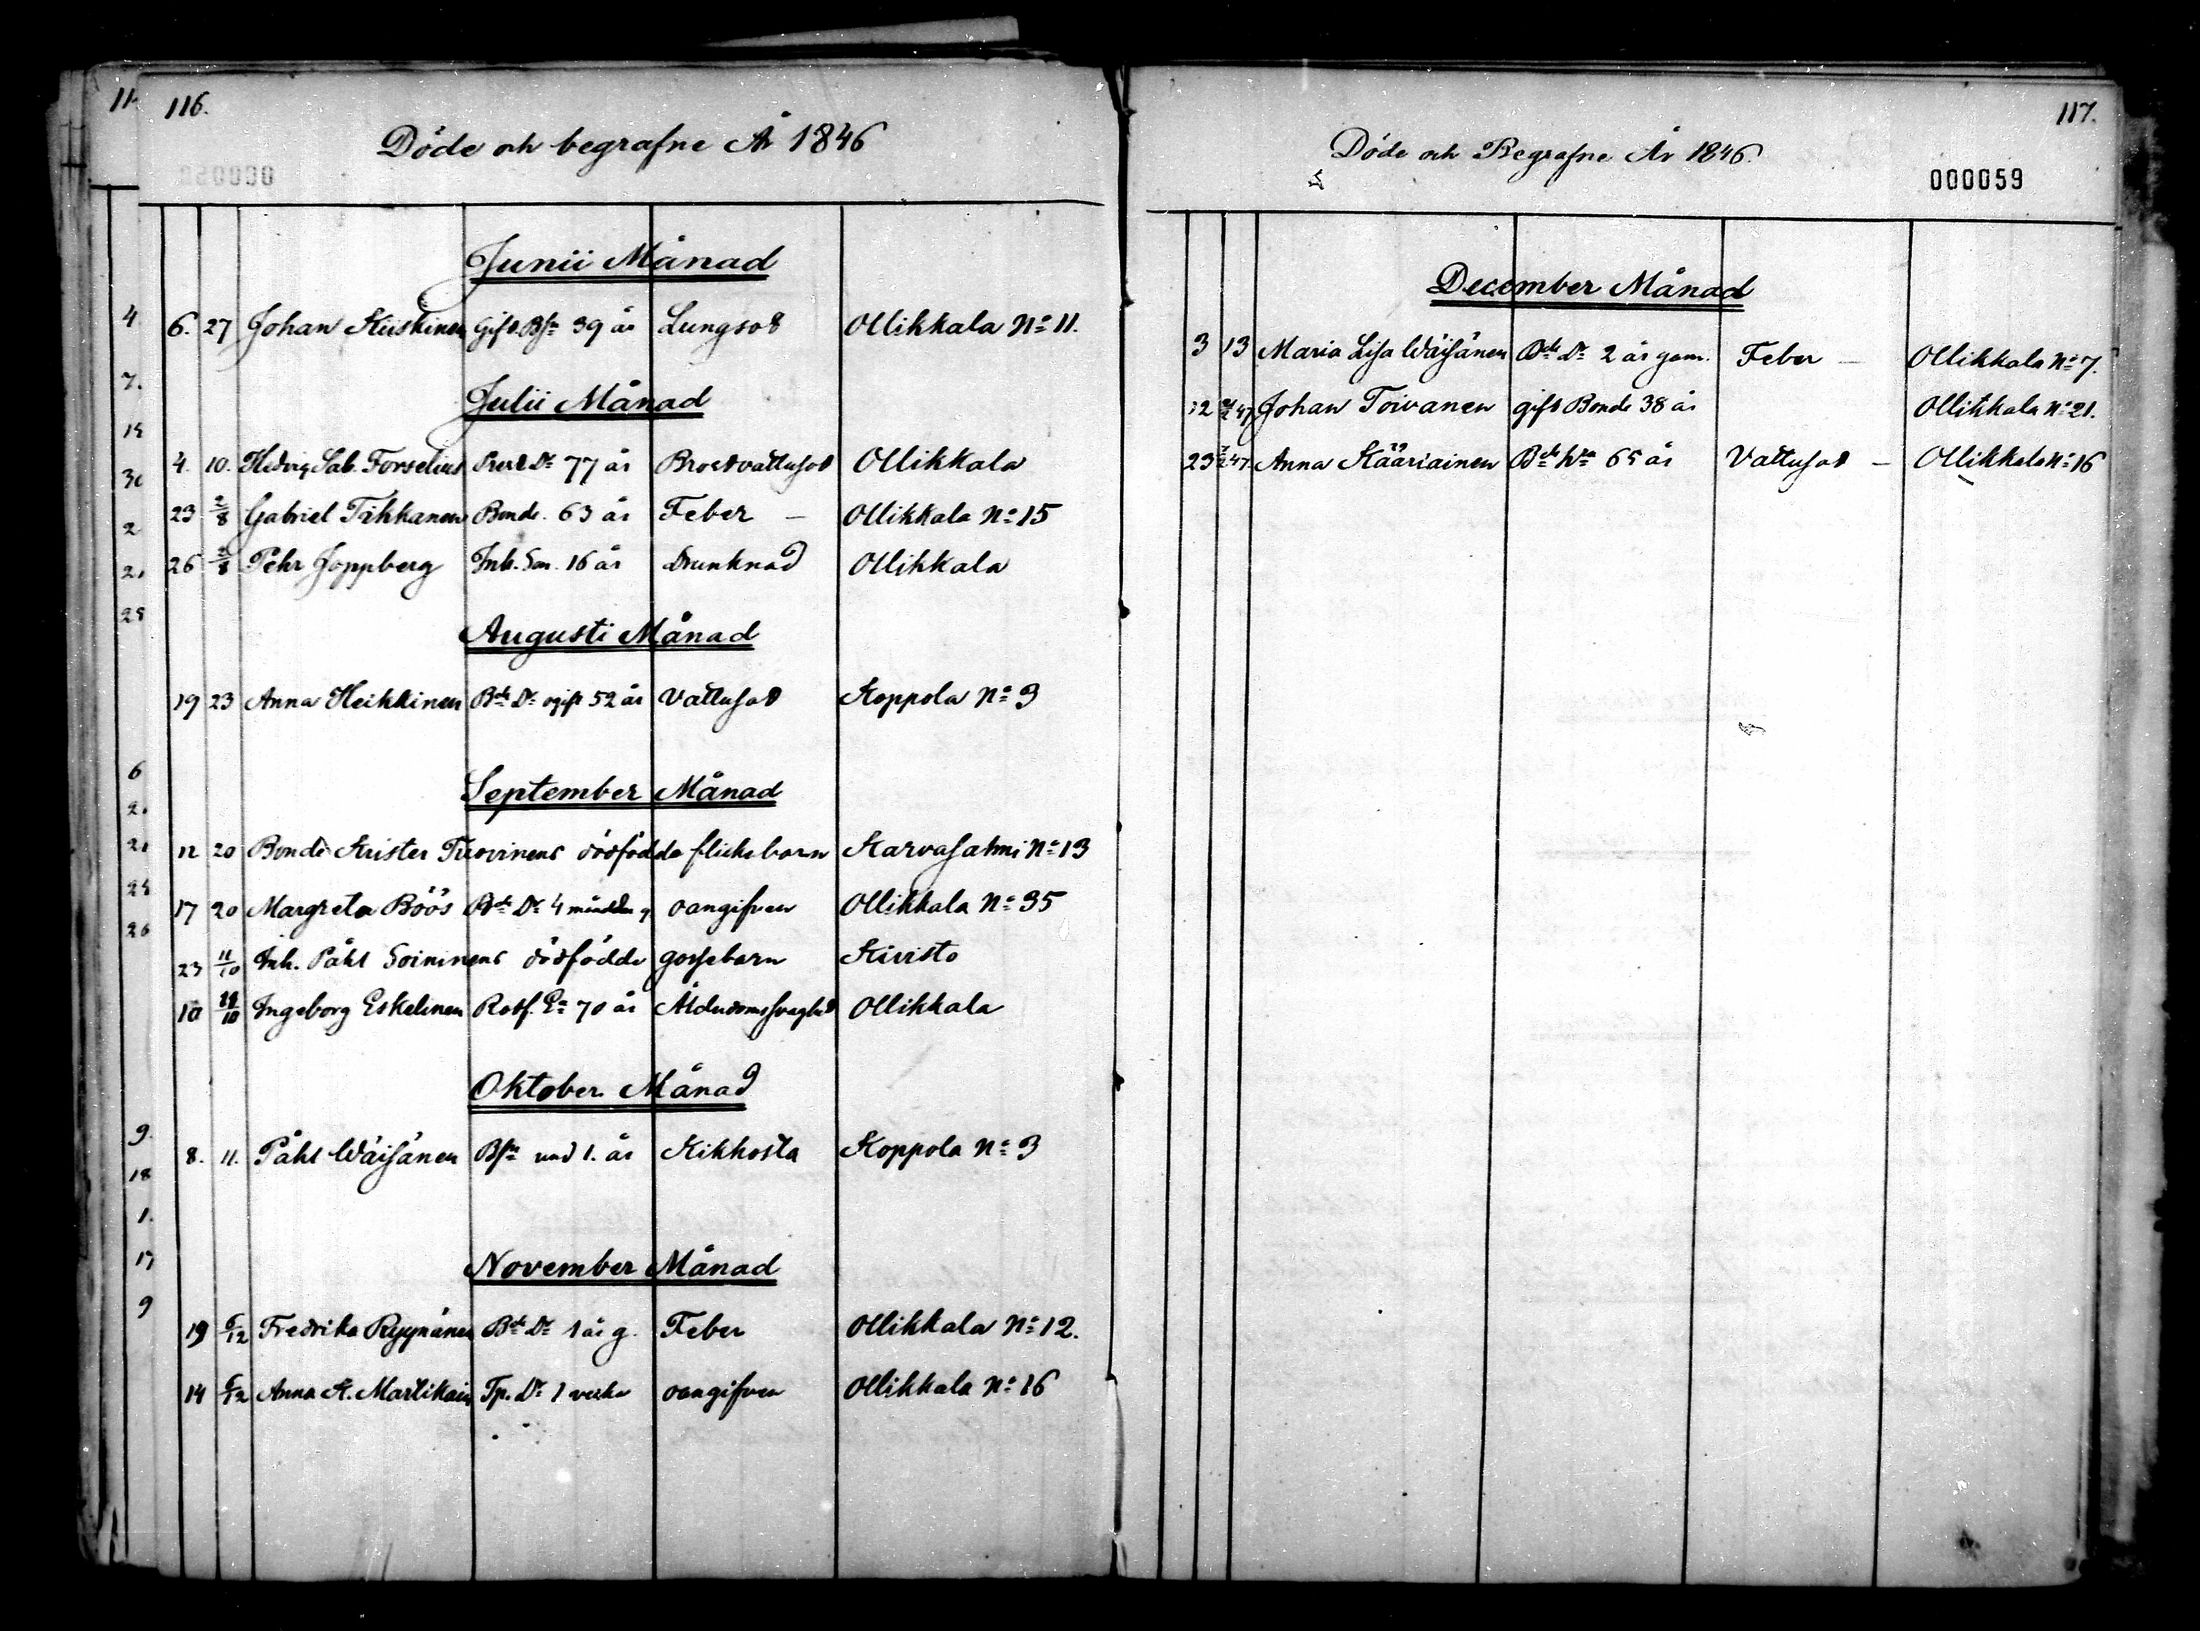 116.
Döde och begrafne År 1846
Junii Månad
6. 27 Johan Kiiskinen Gift Bsn 39 år Lungsot Ollikkala No 11.
Julii Månad
4. 10. Hedvig Sab. Forselius Prest Dr 77 år Bröstvattusot Ollikkala
23 2/8 Gabriel Tikkanen Bonde. 63 år Feber – Ollikkala No 15
26 2/8 Pehr Joppberg Inh. Son. 16 år Drunknad Ollikkala
Augusti Månad
19 23 Anna Heikkinen Bde Dr ogift 52 år Vattusot Koppola No 3
September Månad
12 20 Bonde Krister Turovinens dödfödda flickebarn Karvasalmi No 13
17 20 Margreta Böös Bde Dr 4 månader g oangifven Ollikkala No 35
23 11/10 Inh. Påhl Soininens dödfödde gossebarn Kivisto
10 11/10 Ingeborg Eskelinen Rotf. Ea 70 år Ålderdomssvaghet Ollikkala
Oktober Månad
8. 11. Påhl Wäisänen Bsn und 1. år Kikhosta Koppola No 3
November Månad
19 6/12 Fredrika Ryynänen Bde Dr 1 år g. Feber Ollikkala No 12.
14 6/12 Anna K. Martikain Tp. Dr 1 vecka oangifven Ollikkala No 16
117.
Döde och Begrafne År 1846.
000059
December Månad
3 13 Maria Lisa Wäisänen Bde Dr 2 år gam. Feber – Ollikkala No 7.
12 47 Johan Toivanen gift Bonde 38 år Ollikkala No 21.
23 47. Anna Kääriainen Bde Ha 65 år Vattusot – Ollikkala No 16